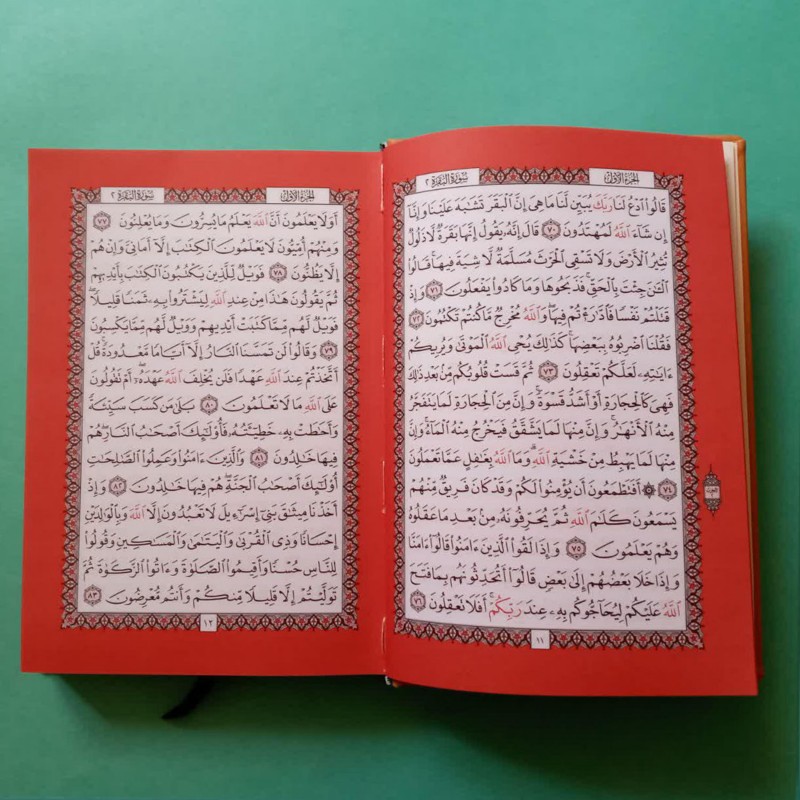 الجزء الأول
سورة البقرة ٢
قَالُوا ادْعُ لَنَا رَبَّكَ يُبَيِّن لَّنَا مَا هِيَ إِنَّ الْبَقَرَ تَشَٰبَهَ عَلَيْنَا وَإِنَّا
إِن شَاءَ اللَّهُ لَمُهْتَدُونَ ٧٠ قَالَ إِنَّهُ يَقُولُ إِنَّهَا بَقَرَةٌ لَّا ذَلُولٌ
تُثِيرُ الْأَرْضَ وَلَا تَسْقِي الْحَرْثَ مُسَلَّمَةٌ لَّا شِيَةَ فِيهَا قَالُوا
الْـَٰٔنَ جِئْتَ بِالْحَقِّ فَذَبَحُوهَا وَمَا كَادُوا يَفْعَلُونَ ٧١ وَإِذْ
قَتَلْتُمْ نَفْسًا فَادَّٰرَٰٔتُمْ فِيهَا وَاللَّهُ مُخْرِجٌ مَّا كُنتُمْ تَكْتُمُونَ ٧٢
فَقُلْنَا اضْرِبُوهُ بِبَعْضِهَا كَذَٰلِكَ يُحْيِ اللَّهُ الْمَوْتَىٰ وَيُرِيكُمْ
ءَايَٰتِهِ لَعَلَّكُمْ تَعْقِلُونَ ٧٣ ثُمَّ قَسَتْ قُلُوبُكُم مِّن بَعْدِ ذَٰلِكَ
فَهِيَ كَالْحِجَارَةِ أَوْ أَشَدُّ قَسْوَةً وَإِنَّ مِنَ الْحِجَارَةِ لَمَا يَتَفَجَّرُ
مِنْهُ الْأَنْهَٰرُ وَإِنَّ مِنْهَا لَمَا يَشَّقَّقُ فَيَخْرُجُ مِنْهُ الْمَاءُ وَإِنَّ
مِنْهَا لَمَا يَهْبِطُ مِنْ خَشْيَةِ اللَّهِ وَمَا اللَّهُ بِغَٰفِلٍ عَمَّا تَعْمَلُونَ
٧٤ ۞ أَفَتَطْمَعُونَ أَن يُؤْمِنُوا لَكُمْ وَقَدْ كَانَ فَرِيقٌ مِّنْهُمْ
يَسْمَعُونَ كَلَٰمَ اللَّهِ ثُمَّ يُحَرِّفُونَهُ مِن بَعْدِ مَا عَقَلُوهُ
وَهُمْ يَعْلَمُونَ ٧٥ وَإِذَا لَقُوا الَّذِينَ ءَامَنُوا قَالُوا ءَامَنَّا
وَإِذَا خَلَا بَعْضُهُمْ إِلَىٰ بَعْضٍ قَالُوا أَتُحَدِّثُونَهُم بِمَا فَتَحَ
اللَّهُ عَلَيْكُمْ لِيُحَاجُّوكُم بِهِ عِندَ رَبِّكُمْ أَفَلَا تَعْقِلُونَ ٧٦
١١
الجزء الأول
سورة البقرة ٢
أَوَلَا يَعْلَمُونَ أَنَّ اللَّهَ يَعْلَمُ مَا يُسِرُّونَ وَمَا يُعْلِنُونَ ٧٧
وَمِنْهُمْ أُمِّيُّونَ لَا يَعْلَمُونَ الْكِتَٰبَ إِلَّا أَمَانِيَّ وَإِنْ هُمْ
إِلَّا يَظُنُّونَ ٧٨ فَوَيْلٌ لِّلَّذِينَ يَكْتُبُونَ الْكِتَٰبَ بِأَيْدِيهِمْ
ثُمَّ يَقُولُونَ هَٰذَا مِنْ عِندِ اللَّهِ لِيَشْتَرُوا بِهِ ثَمَنًا قَلِيلًا
فَوَيْلٌ لَّهُم مِّمَّا كَتَبَتْ أَيْدِيهِمْ وَوَيْلٌ لَّهُم مِّمَّا يَكْسِبُونَ
٧٩ وَقَالُوا لَن تَمَسَّنَا النَّارُ إِلَّا أَيَّامًا مَّعْدُودَةً قُلْ
أَتَّخَذْتُمْ عِندَ اللَّهِ عَهْدًا فَلَن يُخْلِفَ اللَّهُ عَهْدَهُ أَمْ تَقُولُونَ
عَلَى اللَّهِ مَا لَا تَعْلَمُونَ ٨٠ بَلَىٰ مَن كَسَبَ سَيِّئَةً
وَأَحَٰطَتْ بِهِ خَطِيٓـَٔتُهُ فَأُولَٰئِكَ أَصْحَٰبُ النَّارِ هُمْ
فِيهَا خَٰلِدُونَ ٨١ وَالَّذِينَ ءَامَنُوا وَعَمِلُوا الصَّٰلِحَٰتِ
أُولَٰئِكَ أَصْحَٰبُ الْجَنَّةِ هُمْ فِيهَا خَٰلِدُونَ ٨٢ وَإِذْ
أَخَذْنَا مِيثَٰقَ بَنِي إِسْرَٰءِيلَ لَا تَعْبُدُونَ إِلَّا اللَّهَ وَبِالْوَٰلِدَيْنِ
إِحْسَانًا وَذِي الْقُرْبَىٰ وَالْيَتَٰمَىٰ وَالْمَسَٰكِينِ وَقُولُوا
لِلنَّاسِ حُسْنًا وَأَقِيمُوا الصَّلَوٰةَ وَءَاتُوا الزَّكَوٰةَ ثُمَّ
تَوَلَّيْتُمْ إِلَّا قَلِيلًا مِّنكُمْ وَأَنتُم مُّعْرِضُونَ ٨٣
١٢